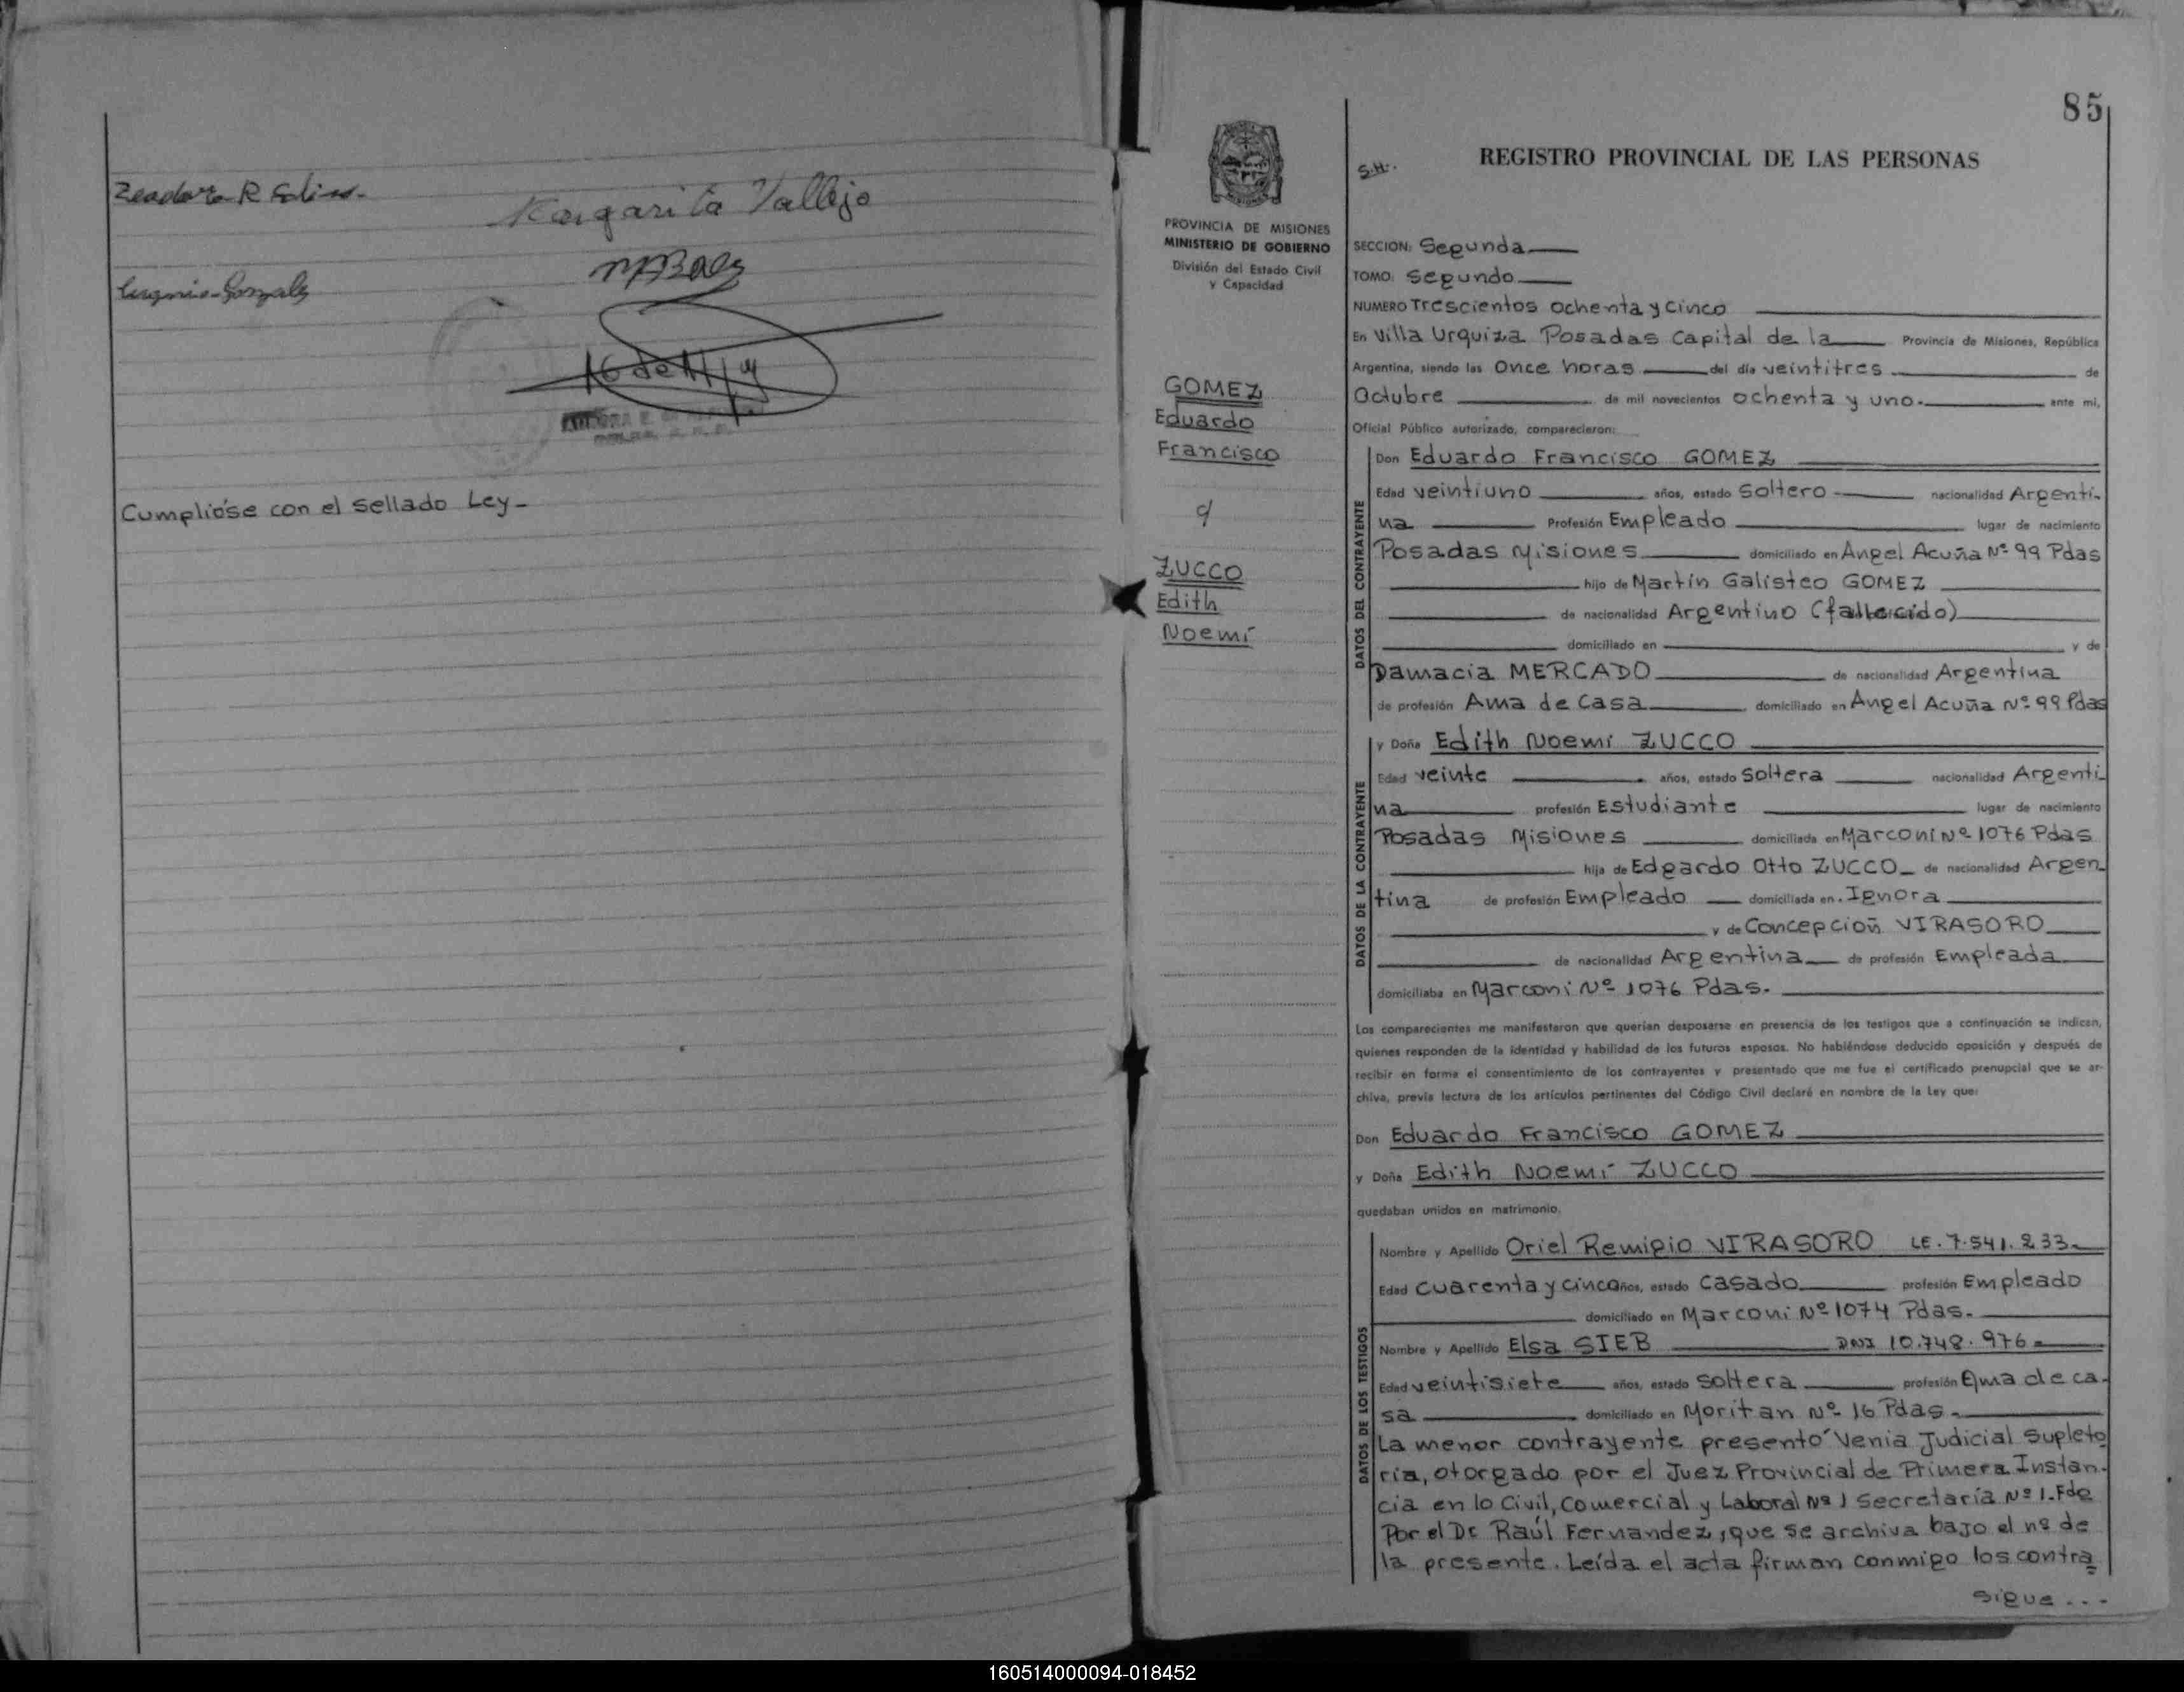 Margarita Vallejo
Cumplióse con el sellado Ley-
85
S.H.
REGISTRO PROVINCIAL DE LAS PERSONAS
PROVINCIA DE MISIONES
MINISTERIO DE GOBIERNO
División del Estado Civil
y Capacidad
GOMEZ
Eduardo
Francisco
c/
ZUCCO
Edith
Noemí
SECCION: Segunda
TOMO: Segundo
NUMERO Trescientos ochenta y cinco
En Villa Urquiza Posadas Capital de la Provincia de Misiones, República
Argentina, siendo las Once horas del día veintitres de
Octubre de mil novecientos ochenta y uno. ante mí,
Oficial Público autorizado, comparecieron:
DATOS DEL CONTRAYENTE
Don Eduardo Francisco GOMEZ
Edad veintiuno años, estado Soltero nacionalidad Argenti-
na Profesión Empleado lugar de nacimiento
Posadas Misiones domiciliado en Angel Acuña Nº 99 Pdas
hijo de Martín Galisteo GOMEZ
de nacionalidad Argentino (fallecido)
domiciliado en y de
Damacia MERCADO de nacionalidad Argentina
de profesión Ama de Casa domiciliado en Angel Acuña Nº 99 Pdas
DATOS DE LA CONTRAYENTE
y Doña Edith Noemí ZUCCO
Edad veinte años, estado Soltera nacionalidad Argenti-
na profesión Estudiante lugar de nacimiento
Posadas Misiones domiciliada en Marconi Nº 1076 Pdas
hija de Edgardo Otto ZUCCO de nacionalidad Argen-
tina de profesión Empleado domiciliada en. Ignora
y de Concepción VIRASORO
de nacionalidad Argentina de profesión Empleada
domiciliaba en Marconi Nº 1076 Pdas.
Los comparecientes me manifestaron que querían desposarse en presencia de los testigos que a continuación se indican,
quienes responden de la identidad y habilidad de los futuros esposos. No habiéndose deducido oposición y después de
recibir en forma el consentimiento de los contrayentes y presentado que me fue el certificado prenupcial que se ar-
chiva, previa lectura de los artículos pertinentes del Código Civil declaré en nombre de la Ley que:
Don Eduardo Francisco GOMEZ
y Doña Edith Noemí ZUCCO
quedaban unidos en matrimonio.
DATOS DE LOS TESTIGOS
Nombre y Apellido Oriel Remigio VIRASORO LE. 7.541.233
Edad Cuarenta y cinco años, estado Casado profesión Empleado
domiciliado en Marconi Nº 1074 Pdas.
Nombre y Apellido Elsa SIEB DNI 10.748.976
Edad veintisiete años, estado Soltera profesión Ama de ca-
sa domiciliado en Moritan Nº 16 Pdas.
La menor contrayente presentó Venia Judicial Supleto
ria, otorgado por el Juez Provincial de Primera Instan-
cia en lo Civil, Comercial y Laboral Nº 1 Secretaría Nº 1. Fdo
Por el Dr Raúl Fernandez, que se archiva bajo el nº de
la presente. Leída el acta firman conmigo los contra
sigue...
160514000094-018452